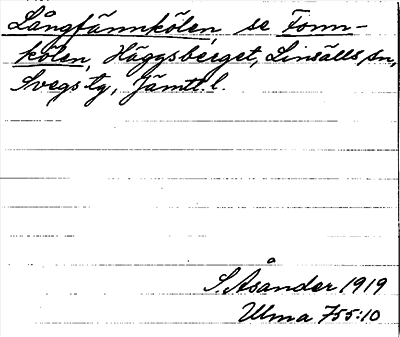 Långfännkölen, se Fonn-
kölen, Häggsberget, Linsälls sn,
Svegs tg, Jämtl. l.
S. Åsander 1919
Ulma 755:10